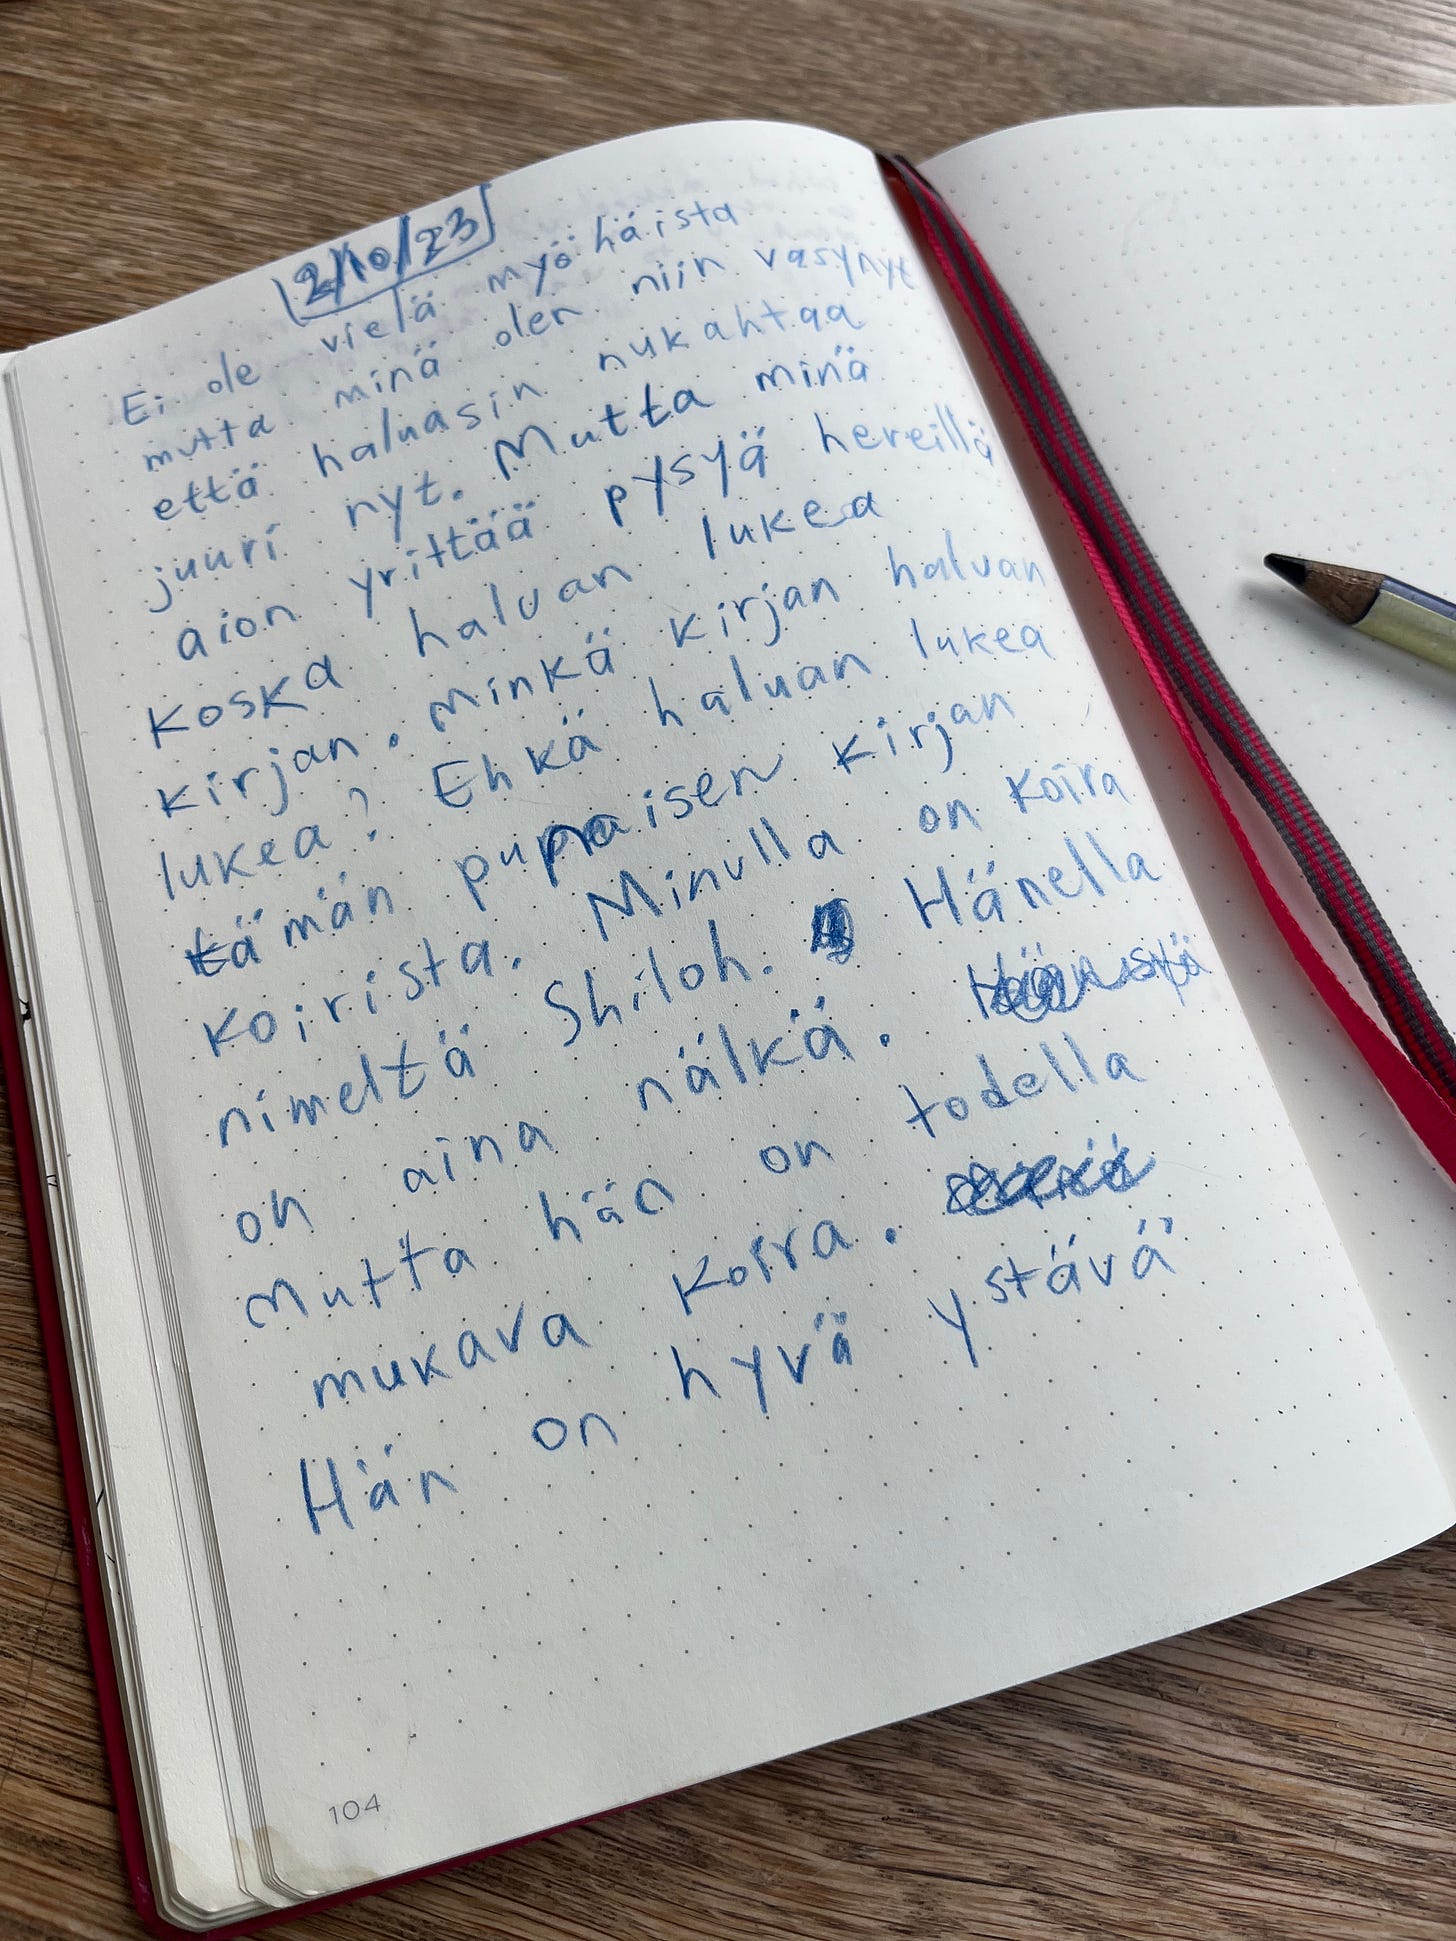 2/10/23
Ei ole vielä myöhäista
mutta minä olen niin väsynyt
että haluasin nukahtaa
juuri nyt. Mutta minä
aion yrittää pysyä hereillä
koska haluan lukea
kirjan. Minkä kirjan haluan
lukea? Ehkä haluan lukea
tämän punaisen kirjan
koirista. Minulla on koira
nimeltä Shiloh. Hänella
on aina nälkä.
Mutta hän on todella
mukava koira.
Hän on hyvä ystävä
104